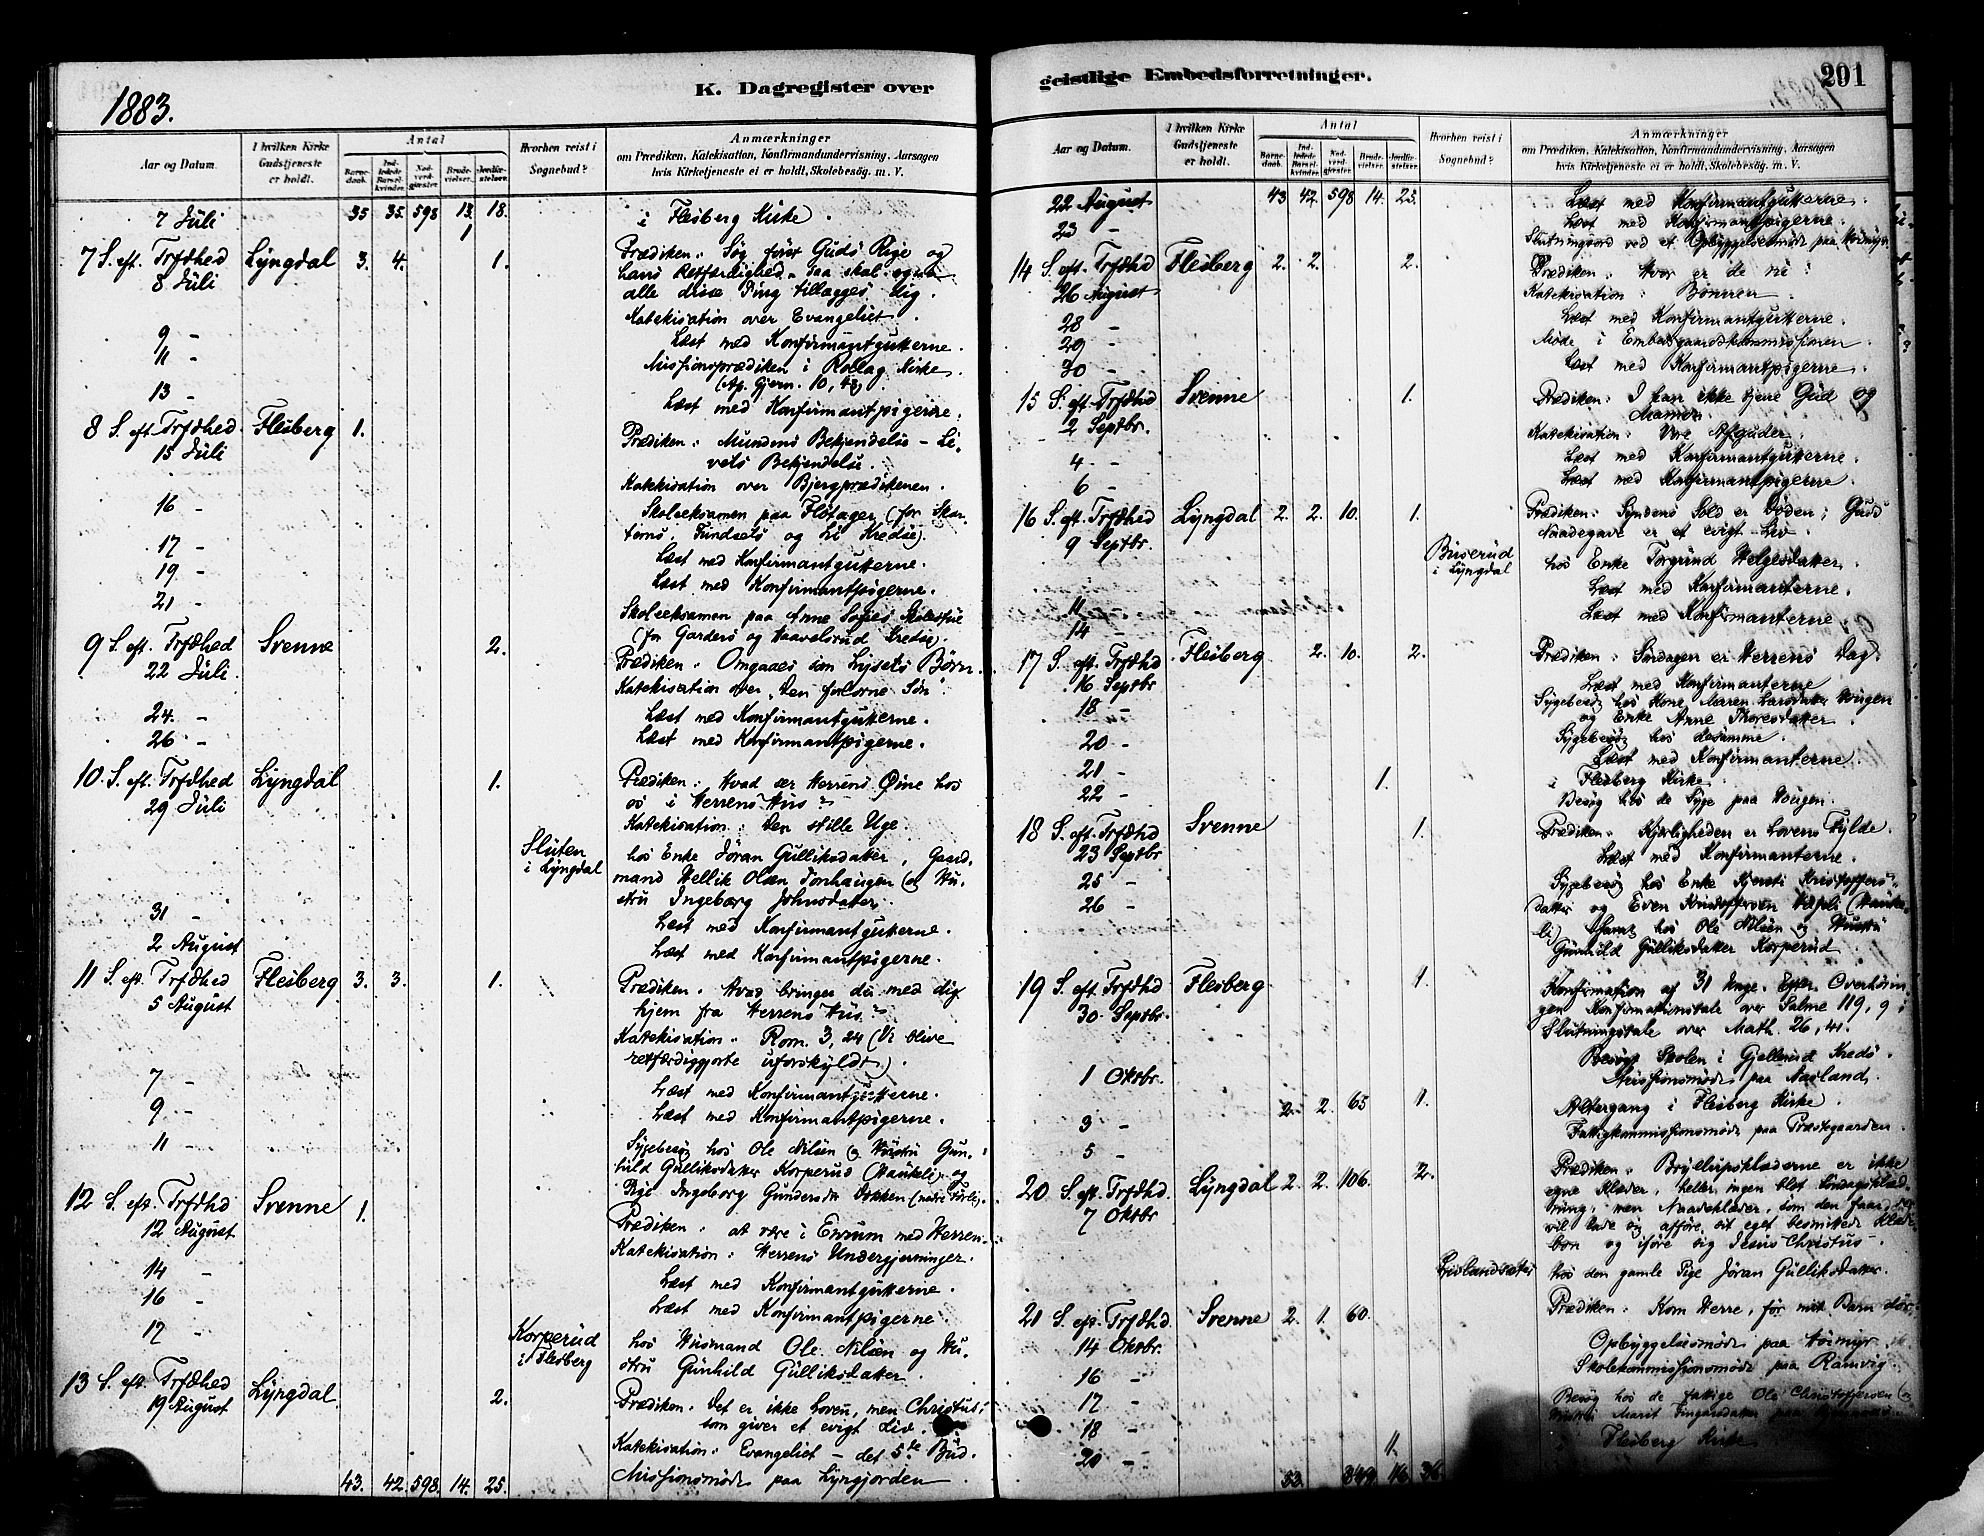 1883.
K. Dagregister over
Aar og Datum.
I hvilken Kirke Gudstjeneste er holdt.
Antal
Barne-daab.
Ind-ledede Barsel-kvinder.
Nad-verd-gjæster.
Brude-vielser.
Jordfæ-stelser.
Hvorhen reist i Sognebud?
Anmærkninger
om Prædiken, Katekisation, Konfirmandundervisning, Aarsagen
hvis Kirketjeneste ei er holdt, Skolebesøg, m. V.
7 Juli 35 35. 598 13. 18. i Flesberg Kirke.
1
7 S. eft. Trfdhed Lyngdal 3. 4. 1. Prædiken: Søg først Guds Rige og
8 Juli hans Retfærdighed, saa skal og
alle disse Ting tillægges Eder.
Katekisation over Evangeliet.
9 - Læst med Konfirmantgutterne.
11 - Missionsprædiken i Rollag Kirke
(Ap. Gjern. 10, 43)
13 - Læst med Konfirmantpigerne.
8 S. eft. Trfdhed. Flesberg 1. Prædiken: Mundens Bekjendelse – Li-
15 Juli vets Bekjendelse.
Katekisation over Bjergprædikenen.
16 - Skoleeksamen paa Fløtager (for
Kredse).
17 - Læst med Konfirmantgutterne.
19 - Læst med Konfirmantpigerne.
21 - Skoleeksamen paa Anne
Kredse).
9 S. eft. Trfdhed Svenne 2. Prædiken: Omgaaes som Lysets Børn.
22 Juli. Katekisation over "Den forlorne Søn"
24. - Læst med Konfirmantgutterne.
26. - Læst med Konfirmantpigerne.
10. S. eft. Trfdhed Lyngdal 1. Prædiken: Hvad ser Herrens Øine hos
29 Juli os i Herrens Hus?
Katekisation: Den stille Uge.
Sluten i Lyngdal hos Enke Jøran Gulliksdatter, Gaard-
mand Hellik Olsen Tonhaugen og Hu-
stru Ingeborg Johnsdatter.
31 - Læst med Konfirmantgutterne.
2 August Læst med Konfirmantpigerne.
11 S. eft. Trfdhed Flesberg 3. 3. 1. Prædiken: Hvad bringer du med dig
5 August hjem fra Herrens Hus?
Katekisation: Rom. 3, 24 (Vi blive
retfærdiggjorte uforskyldt).
7 - Læst med Konfirmantgutterne.
9 - Læst med Konfirmantpigerne.
11 - Sygebesøg hos Ole Nilsen og Hustru Gun-
hild Gulliksdatter Korperud (Haukeli) og
Pige Ingeborg
12 S. eft. Trfdhd Svenne 1. Prædiken: at være i Enrum med Herren.
12 August Katekisation: Herrens Undergjerninger.
14 - Læst med Konfirmantgutterne.
16 - Læst med Konfirmantpigerne.
17 - Korperud i Flesberg hos Husmand Ole Nilsen og Hu-
stru Gunhild Gulliksdatter.
13 S. eft. Trfdhed Lyngdal 2. Prædiken: Det er ikke Loven, men Christus
19 August som giver et evigt Liv.
Katekisation: Evangeliet – det 5te Bud.
43. 42. 598. 14. 25. Missionsmøde paa Lyngjorden
geistlige Embedsforretninger.
201
Aar og Datum.
I hvilken Kirke Gudstjeneste er holdt.
Antal
Barne-daab.
Ind-ledede Barsel-kvinder.
Nad-verd-gjæster.
Brude-vielser.
Jordfæ-stelser.
Hvorhen reist i Sognebud?
Anmærkninger
om Prædiken, Katekisation, Konfirmandundervisning, Aarsagen
hvis Kirketjeneste ei er holdt, Skolebesøg, m. V.
22 August 43 42. 598 14. 25. Læst med Konfirmantgutterne.
23 - Læst med Konfirmantpigerne.
Slutningsord ved et Opbyggelsesmøde paa
14 S. eft. Trfdhd Flesberg 2. 2. 2. Prædiken: Hvor er de ni?
26 August Katekisation: Bønnen.
28 - Læst med Konfirmantgutterne.
29 - Møde i Embedsgaardskommissionen.
30 - Læst med Konfirmantpigerne.
15 S. eft. Trfdhd Svenne 1. Prædiken: I kan ikke tjene Gud og
2 Septbr. Mamon.
Katekisation: Vore Afguder.
4 - Læst med Konfirmantgutterne.
6 - Læst med Konfirmantpigerne.
16 S. eft. Trfdhed Lyngdal 2. 2. 10. 1. Prædiken: Syndens Sold er Døden; Guds
9 Septbr. Naadegave er et evigt Liv.
Buserud i Lyngdal hos Enke Torgrund Helgesdatter.
11 - Læst med Konfirmanterne.
14 - Læst med Konfirmanterne
17 S. eft. Trfdhd Flesberg 2. 10. 2. Prædiken: Søndagen er Herrens Dag.
16 Septbr Læst med Konfirmanterne
18 - Sygebesøg hos Kone Maren Larsdatter Haugen
og Enke Anne Thoresdatter.
20 - Sygebesøg hos desamme.
21 - Læst med Konfirmanterne.
22 - 1. i Flesberg Kirke.
Besøg hos de Syge paa Haugen.
18 S. eft. Trfdhd Svenne 1. Prædiken: Kjærligheden er Lovens Fylde.
23 Septbr. Læst med Konfirmanterne.
25 - Sygebesøg hos Enke Kjersti Kristoffers-
26 - datter og Even Kristoffersen
samt hos Ole Nilsen og Hustru
Gunhild Gulliksdatter Korperud.
19 S. eft. Trfdhd Flesberg 1. Konfirmation af 31 Unge. Efter Overhørin-
30 Septbr. gen Konfirmationstale over Salme 119, 9 i
Slutningstale over Math. 26, 41.
1 Oktbr. Besøgt Skolen i Gjellerud Kreds.
Missionsmøde paa Aasland.
3 - 2. 2 65 1. Altergang i Flesberg Kirke.
5 - Fattigkommissionsmøde paa Præstegaarden.
20 S. eft. Trfdhd. Lyngdal 2. 2. 106. 2. Prædiken: Bryllupsklæderne er ikke
7 Oktbr egne Klæder, heller ingen
men Naadeklæder, som den faar der
vil lade sig afføre sit eget besmittede Klæde-
bon og iføre sig Jesus Christus.
hos den gamle Pige Jøran Gulliksdatter.
21 S. eft. Trfdhd Svenne 2. 1. 60. Prædiken: Kom Herre, før mit Barn dør.
14 Oktbr. Opbyggelsesmøde paa
16 - Skolekommissionsmøde paa Ramvig.
17 - Besøg hos de fattige Ole Christoffersen og
18 - Hustru Marit
20 - 1. Flesberg Kirke
53. 849. 16 36